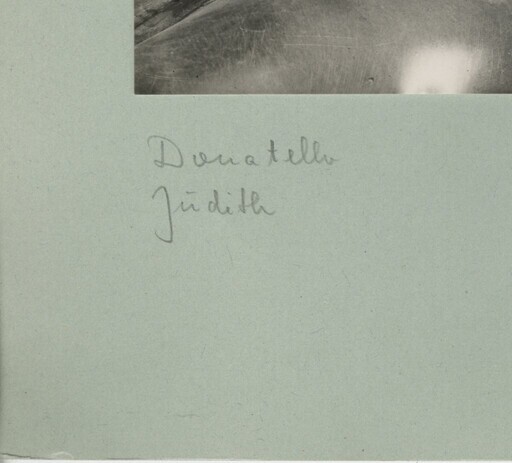 Donatello
Judith